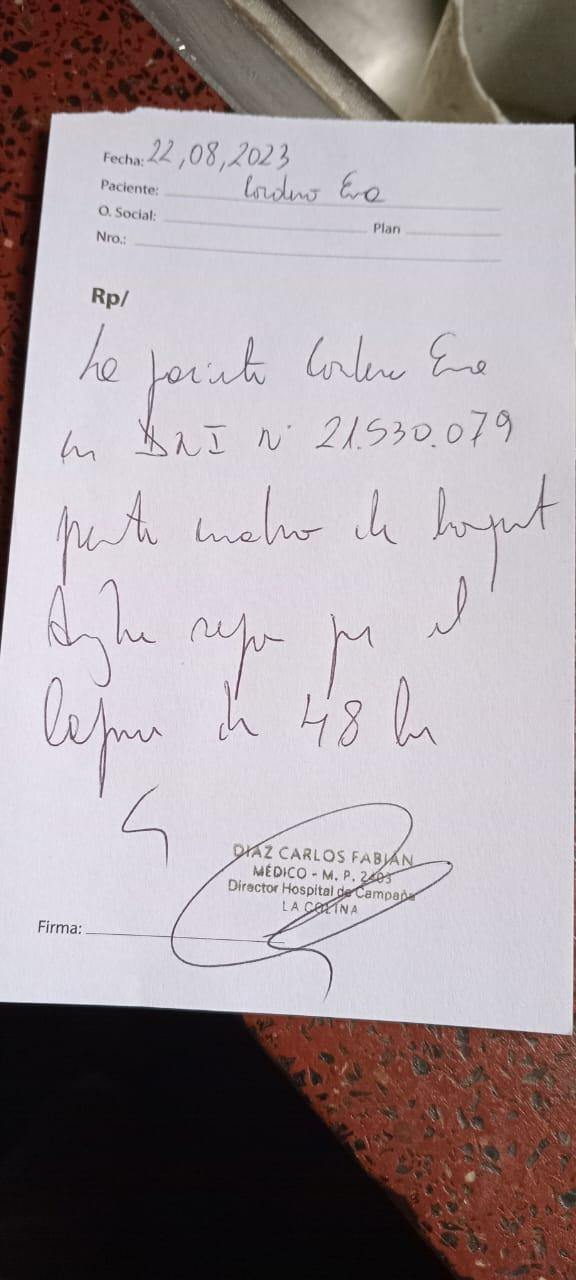 Fecha: 22,08,2023
Paciente: Cordero Eva
O. Social: Plan
Nro.:
Rp/
La paciente Cordero Eva
con DNI N° 21.530.079
presenta cuadro de
reposo por el
lapso de 48 hs
DIAZ CARLOS FABIÁN
MÉDICO - M. P. 2403
Director Hospital de Campaña
LA COLINA
Firma: